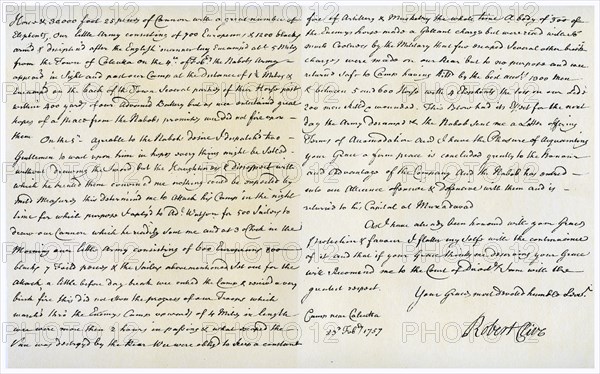 Horse & 30000 foot 25 pieces of Cannon with a great number of
Elephants, Our little Army consisting of 700 Europeans & 1200 blacks
arm'd & disciplin'd after the English manner lay Encamp'd abt. 5 Miles
from the Town of Calcutta on the 4th of Febry the Nabobs Army
appear'd in Sight and past our Camp at the distance of 1½ Miles &
Encamp'd on the back of the Town Several parties of their Horse past
within 400 yards of our Advanc'd Battery but as we entertain'd great
hopes of a peace from the Nabobs promises we did not fire upon
them
On the 5th agreable to the Nabobs desire I dispatch'd two
Gentlemen to wait upon him in hopes every thing might be Settled
without drawing the Sword but the Haughtiness & disrespect with
which he treated them convinc'd me nothing could be expected by
mild Measures this determined me to Attack his Camp in the night
time for which purpose I apply'd to Adl. Watson for 500 Sailors to
draw our Cannon which he readily Sent me and at 3 oClock in the
Morning our little Army consisting of 600 Europeans 800
blacks 7 Field pieces & the Sailors abovemention'd Set out for the
Attack, a little before day break we enter'd the Camp & receiv'd a very
brisk fire this did not stop the progress of our Troops which
march'd thro the Enemys Camp upwards of 4 Miles in length
we were more than 2 hours in passing & what escap'd the
Van was destroy'd by the Rear We were obliged to keep a constant
fire of Artillery & Musketry the whole time A body of 300 of
the Enemys horse made a Gallant charge but were receiv'd with so
much Coolness by the Military that few escaped Several other brisk
charges were made on our Rear but to no purpose and we
return'd Safe to Camp having kill'd by the best accts. 1300 Men
& between 5 and 600 Horse with 4 Elephants the loss on our Side
200 men killed & wounded. This Blow had its Effect for the next
day the Army decamp'd & the Nabob Sent me a Letter offering
Terms of Accomodation and I have the Pleasure of Acquainting
your Grace a firm peace is concluded greatly to the Honour
and Advantage of the Company And the Nabob has enter'd
into an Alliance offensive & Defensive with them and is
return'd to his Capital at Muxadavad
As I have already been honour'd with your Graces
protection & favour I flatter my Self with the continuance
of it and that if your Grace thinks me deserving your Grace
will Recommend me to the Court of Directors I am with the
greatest respect.
Your Graces most devoted humble Servt.
Camp near Calcutta
23d Febry 1757
Robert Clive
PHOTO 12